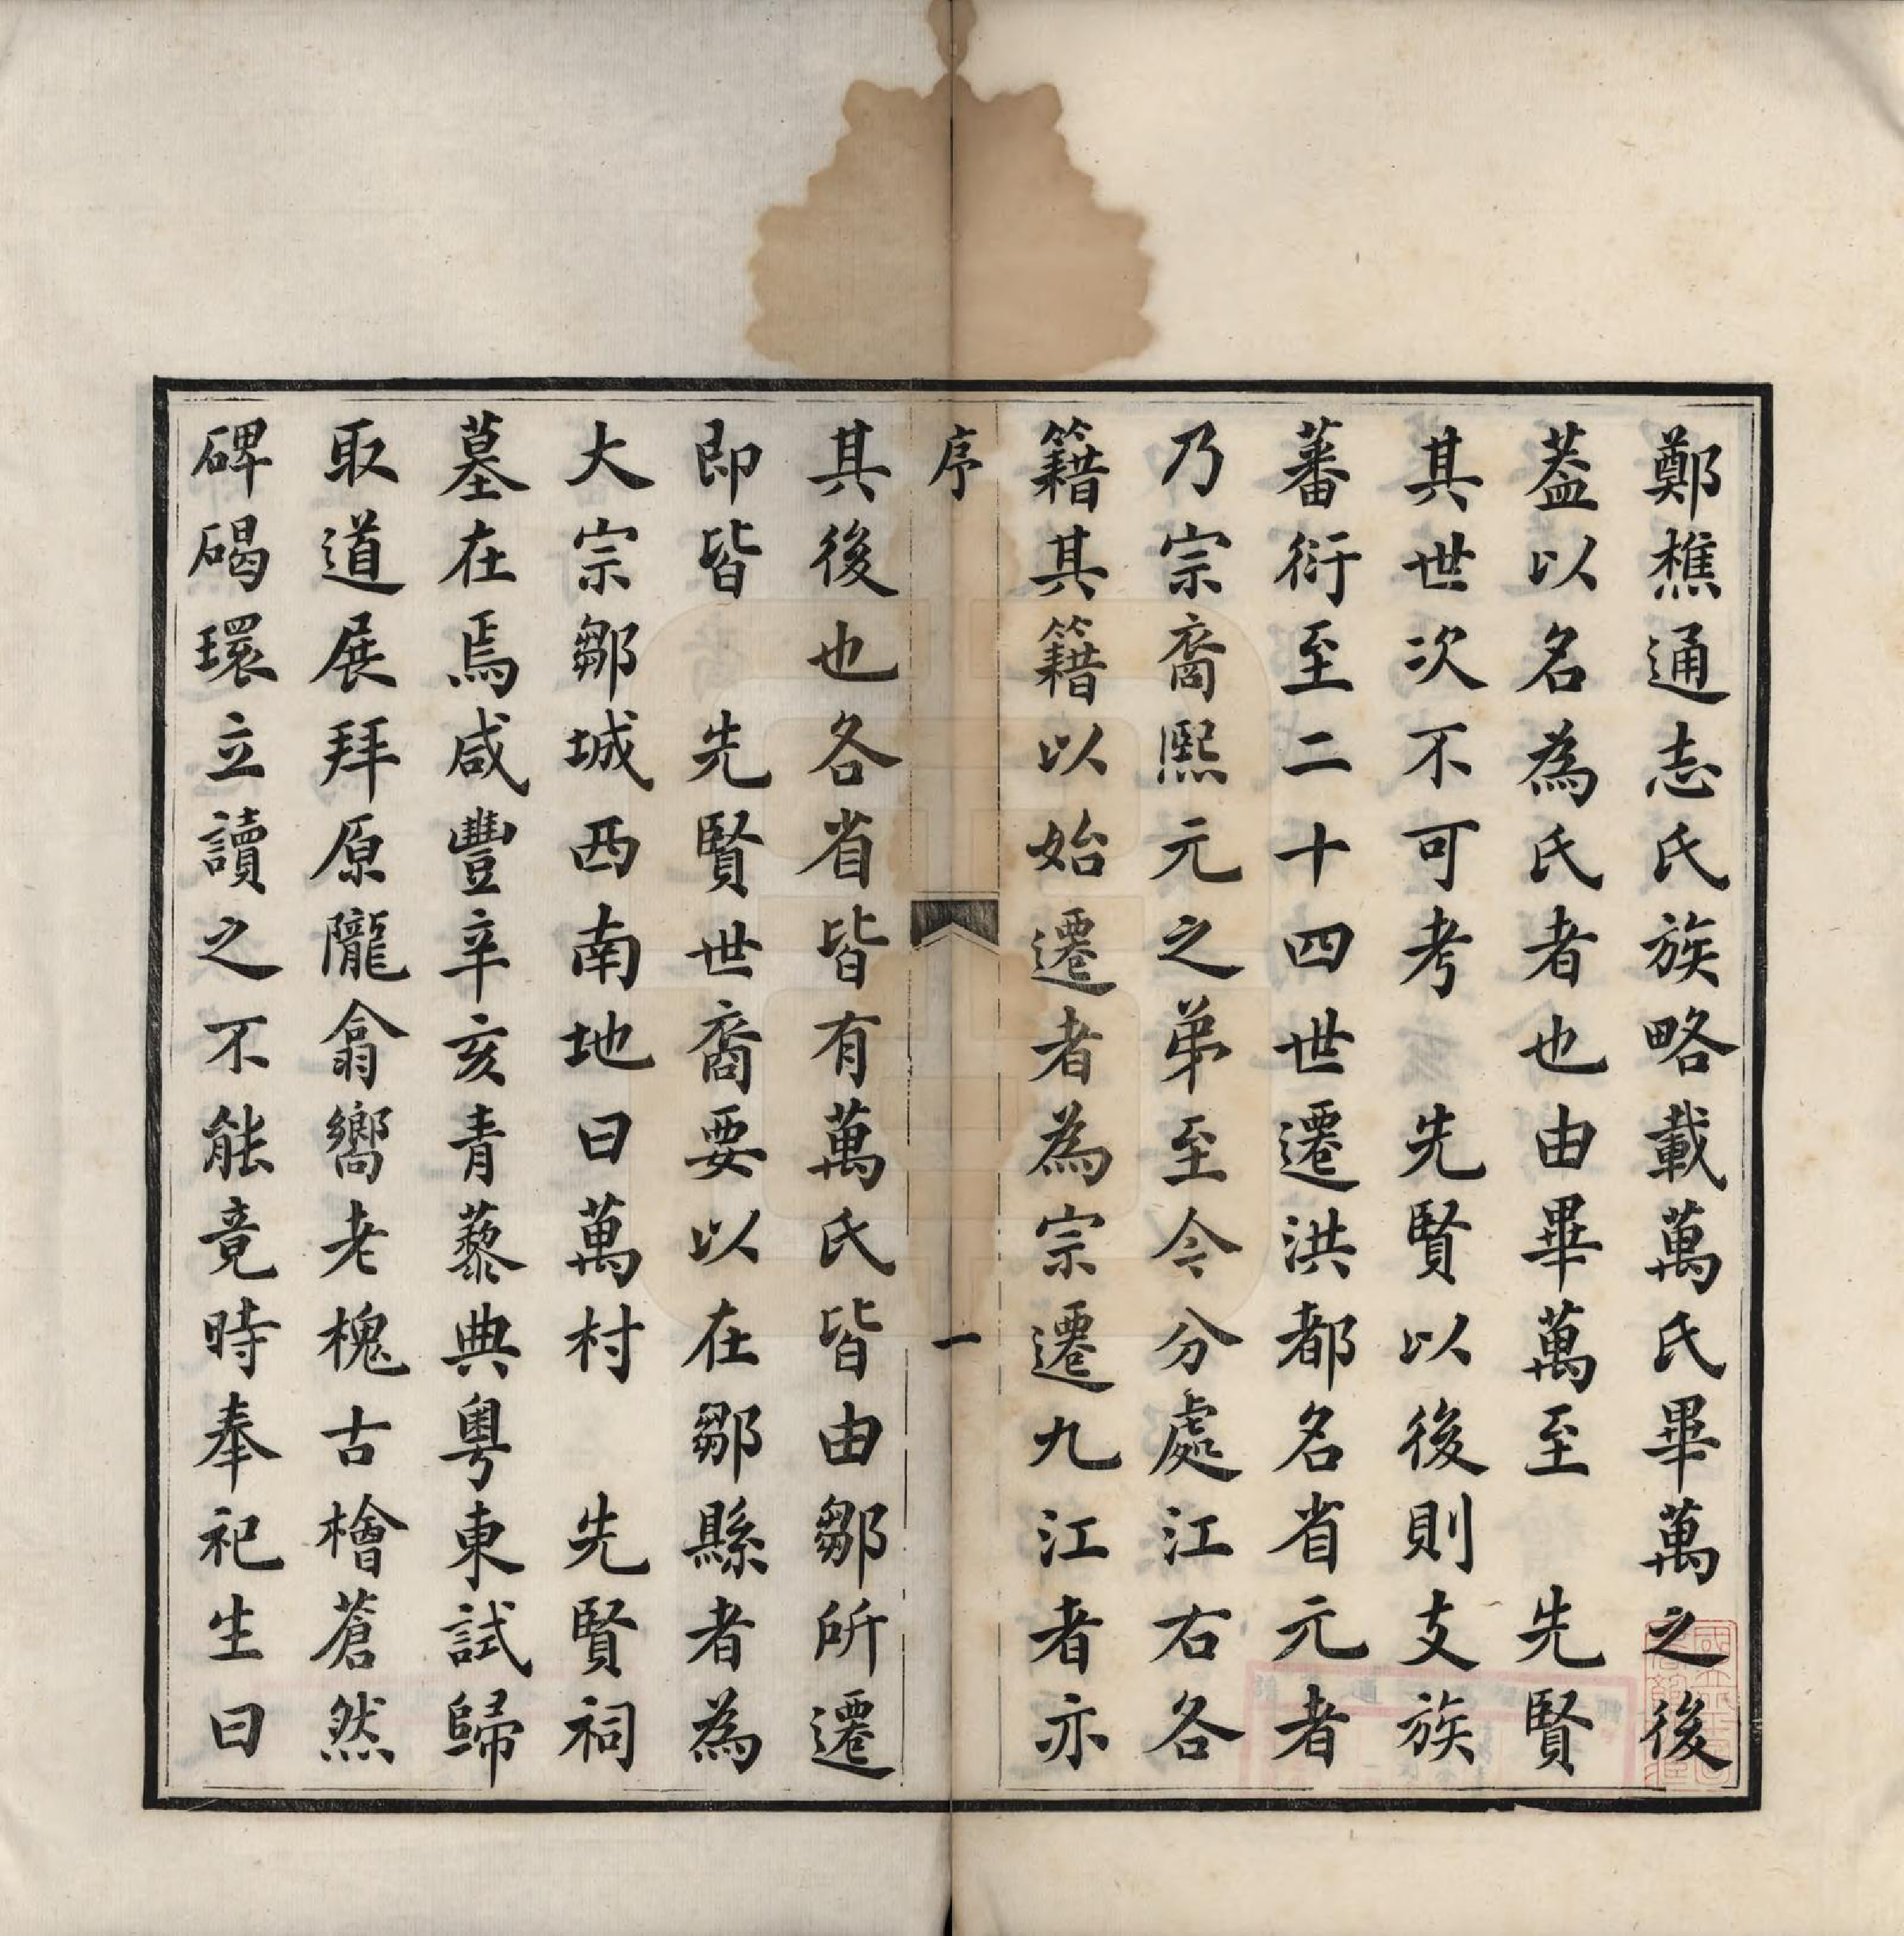 鄭樵通志氏族略載萬氏畢萬之後
葢以名為氏者也由畢萬至　先賢
其世次不可考　先賢以後則支族
蕃衍至二十四世遷洪都名省元者
乃宗裔熙元之弟至今分處江右各
籍其籍以始遷者為宗遷九江者亦
序
一
其後也各省皆有萬氏皆由鄒所遷
即皆　先賢世裔要以在鄒縣者為
大宗鄒城西南地曰萬村　先賢祠
墓在焉咸豐辛亥青藜典粵東試歸
取道展拜原隴翕嚮老槐古檜蒼然
碑碣環立讀之不能竟時奉祀生曰